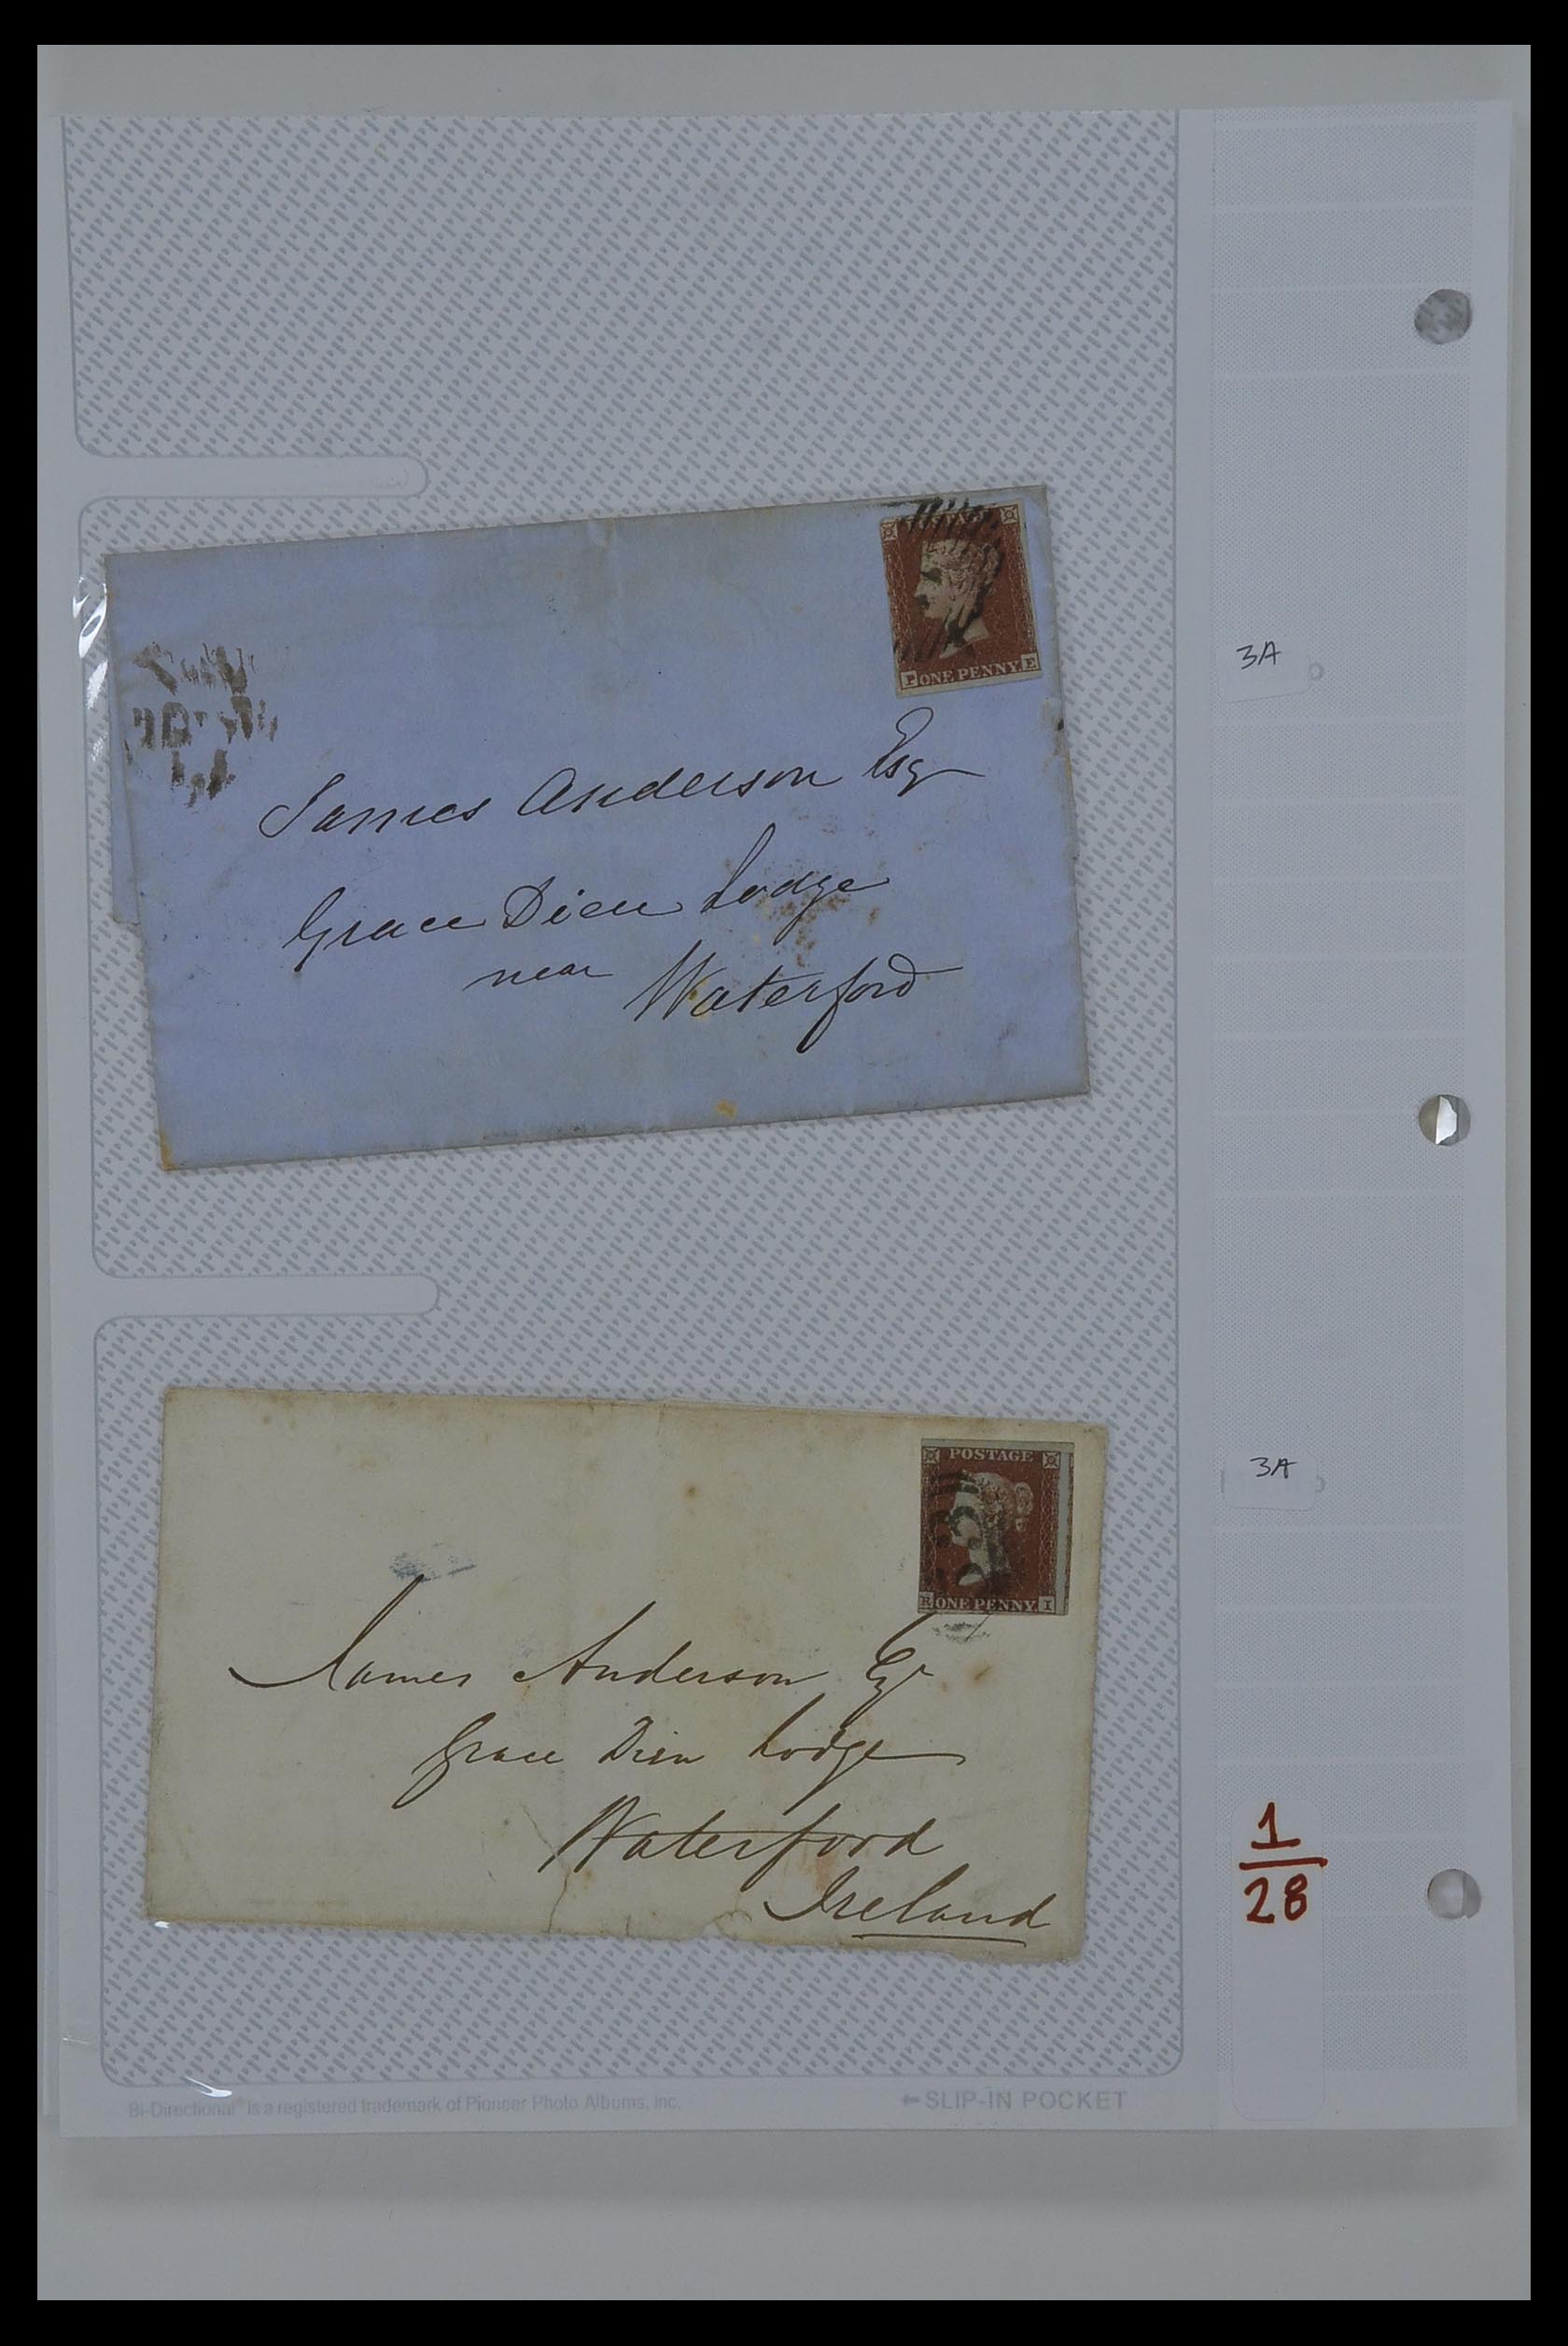 POSTAGE
P ONE PENNY. E
3A
James Anderson Esq
Grace Dieu Lodge
near Waterford
POSTAGE
R ONE PENNY. I
3A
James Anderson Esqr
Grace Dieu Lodge
Waterford
Ireland
1
28
Bi-Directional® is a registered trademark of Pioneer Photo Albums, Inc.
←SLIP-IN POCKET